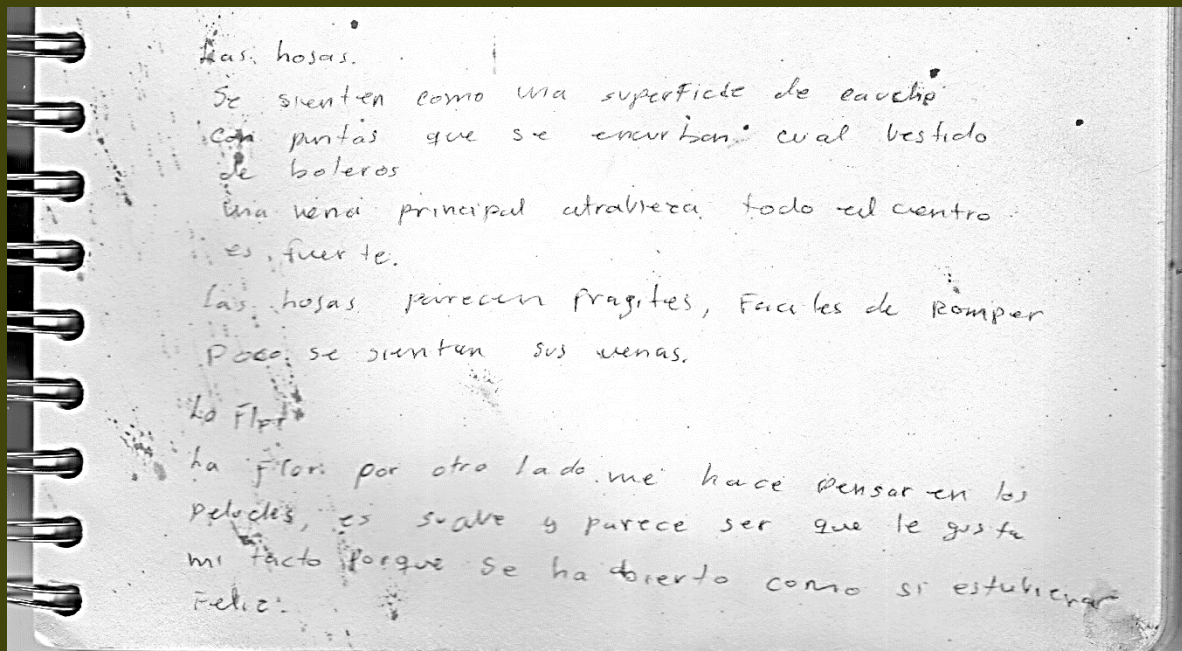 Las hosas.
Se sienten como una superficie de caucho
con puntas que se encurban cual vestido
de boleros
una vena principal atrabieza todo el centro
es fuerte.
Las hosas parecen fragiles, Faciles de Romper
Poco se sienten sus venas.
La Flor
La Flor por otro lado me hace pensar en los
peluches, es suave y parece ser que le gusta
mi tacto porque se ha abierto como si estubiera
Feliz.